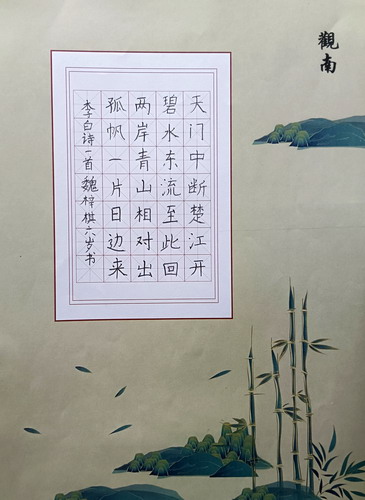 觀南
天门中断楚江开
碧水东流至此回
两岸青山相对出
孤帆一片日边来
李白诗一首魏梓棋六岁书